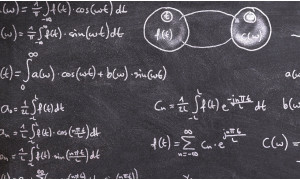 a(ω) = 1/π ∫_{-∞}^{∞} f(t) · cos(ωt) dt
(ω) = 1/π ∫_{-∞}^{∞} f(t) · sin(ωt) dt
t f(t)
c(ω)
(t) = ∫_0^∞ a(ω) · cos(ωt) + b(ω) · sin(ωt)
a
a₀ = 1/2L ∫_{-L}^{L} f(t) dt
Cn = 1/2L ∫_{-L}^{L} f(t) e^{-jnπt/L} dt
b(ω
aₙ = 1/L ∫_{-L}^{L} f(t) · cos(nπt/L) dt
f(t) = ∑_{n=-∞}^{∞} Cn · e^{jnπt/L}
C(ω) =
∫_{-L}^{L} f(t) sin(nπt/L) dt